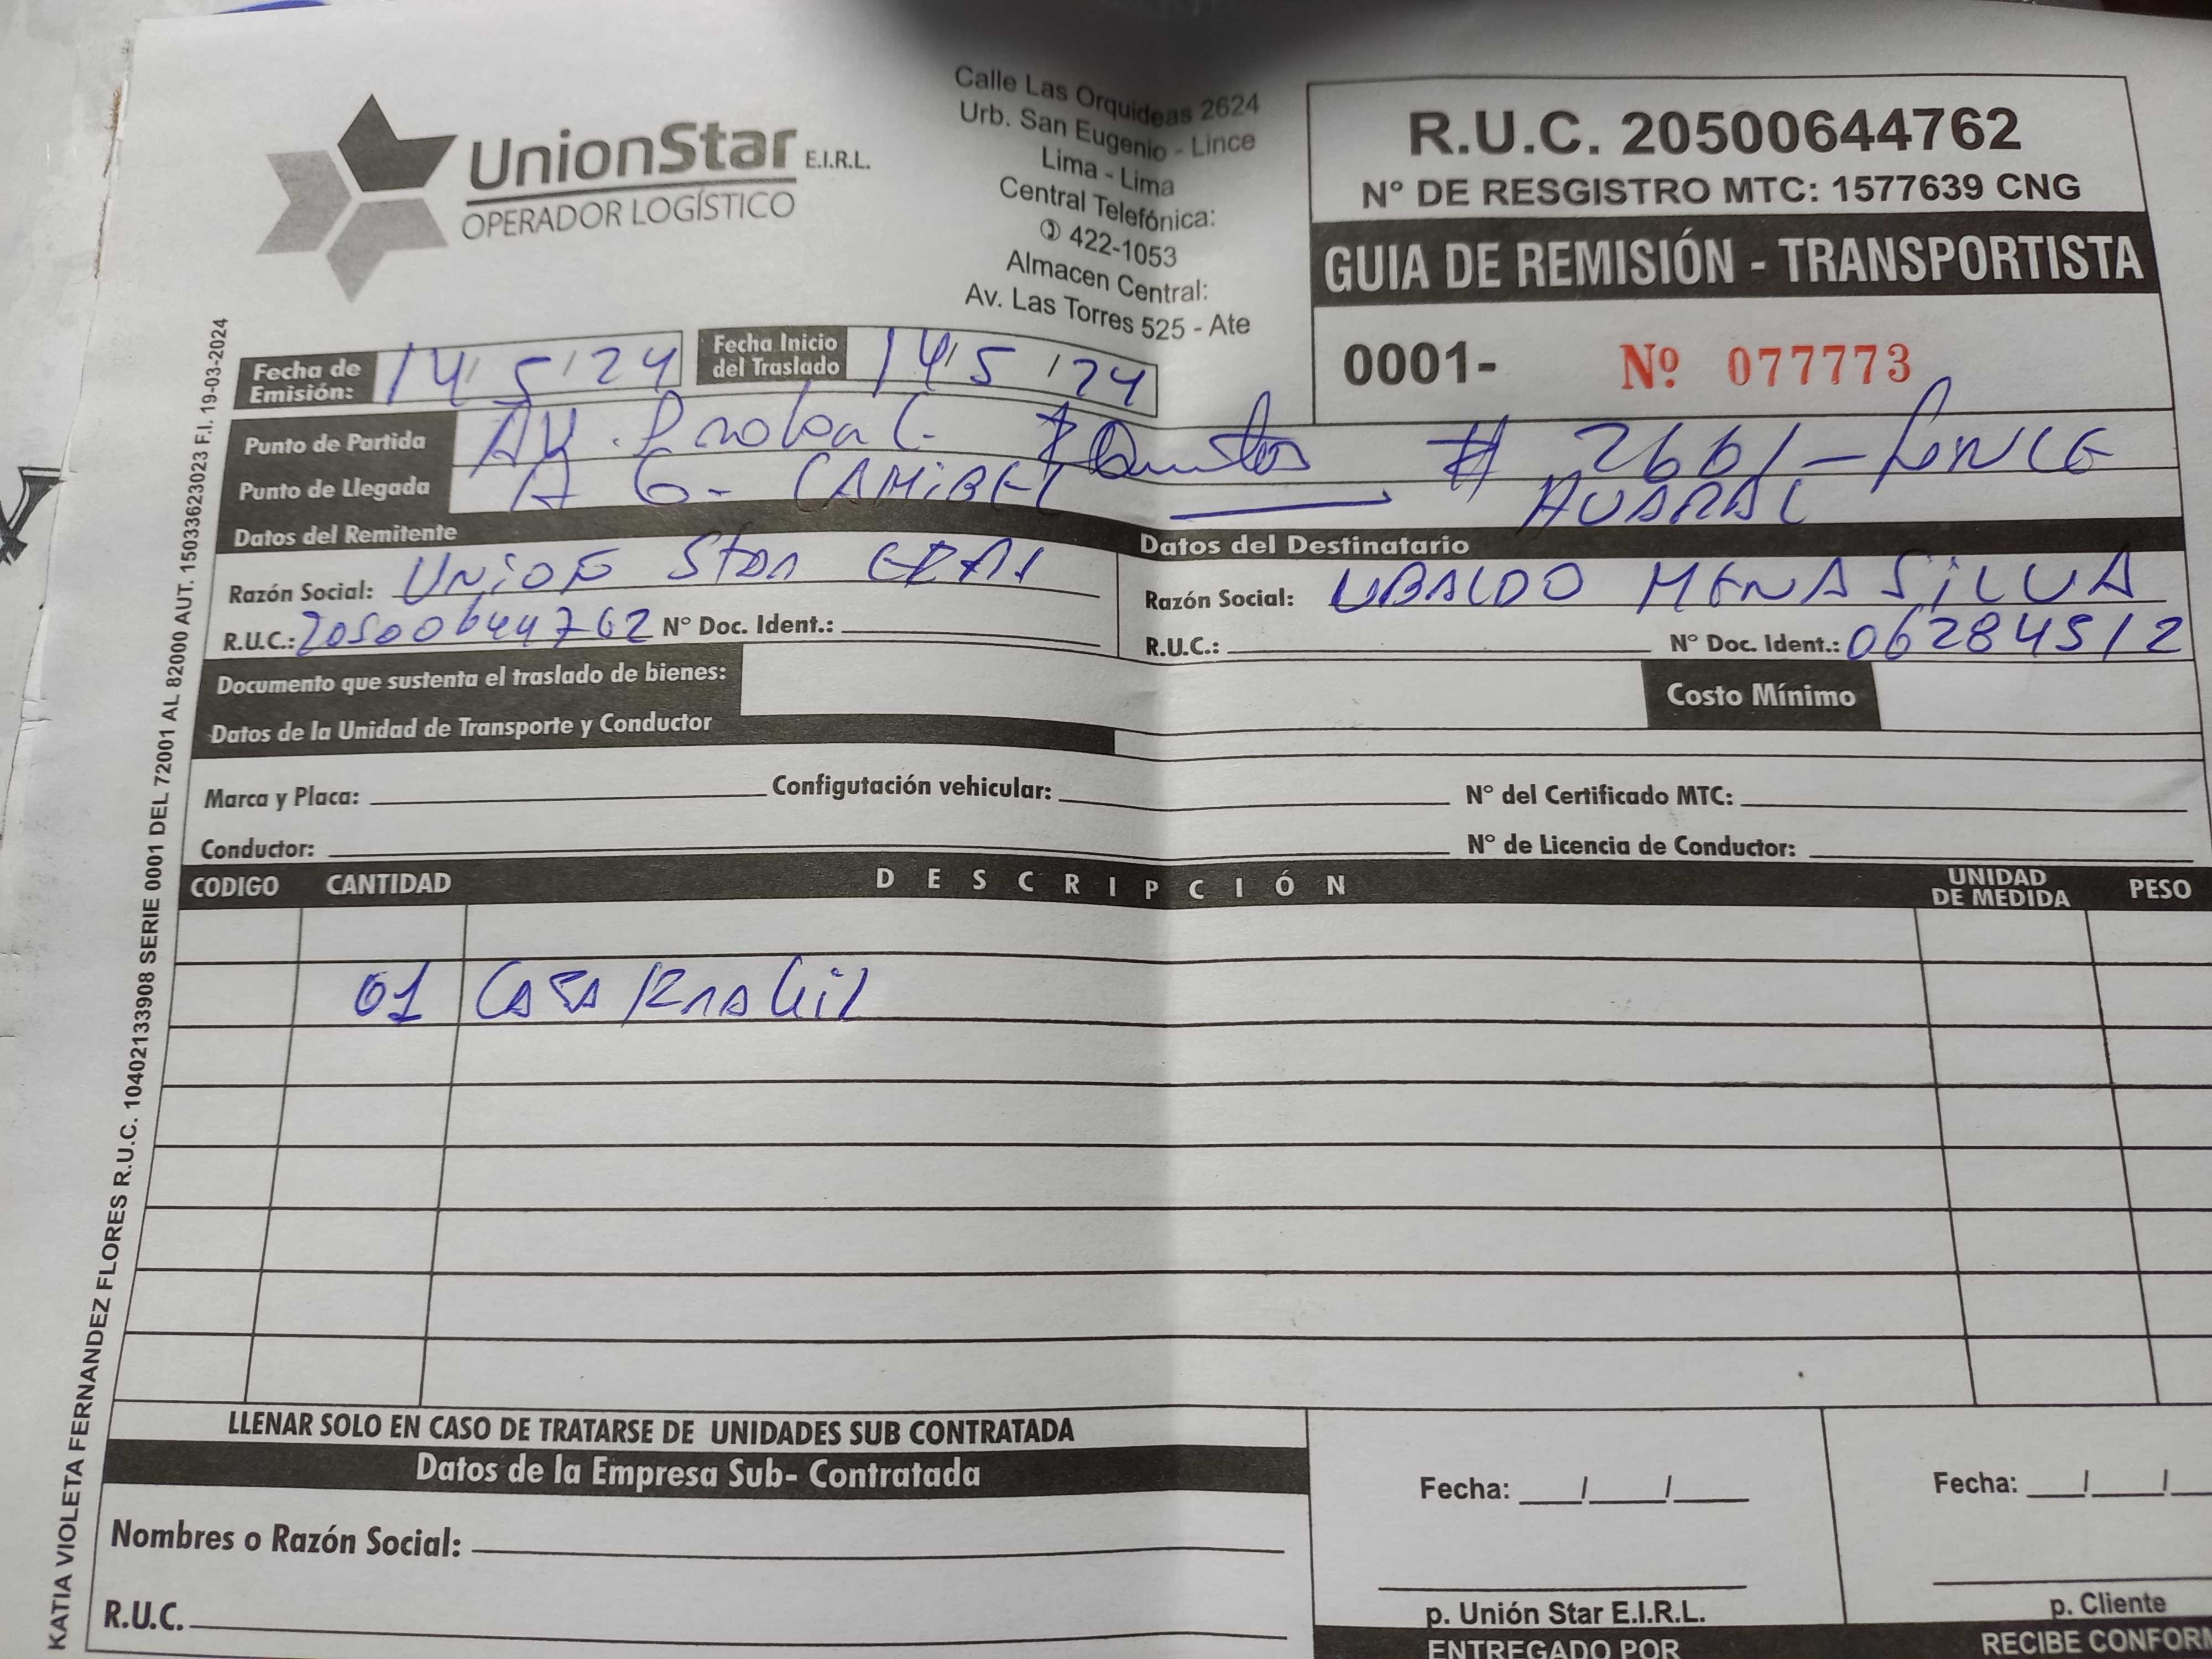 UnionStar E.I.R.L.
OPERADOR LOGÍSTICO
Calle Las Orquideas 2624
Urb. San Eugenio - Lince
Lima - Lima
Central Telefónica:
422-1053
Almacen Central:
Av. Las Torres 525 - Ate
R.U.C. 20500644762
N° DE RESGISTRO MTC: 1577639 CNG
GUIA DE REMISIÓN - TRANSPORTISTA
0001- Nº 077773
Fecha de Emisión: 14/5/24 Fecha Inicio del Traslado 14/5/24
Punto de Partida AV. # 2661 - LINCE
Punto de Llegada HUARAL
Datos del Remitente
Razón Social: UNION Star
R.U.C.: 20500644762 N° Doc. Ident.:
Datos del Destinatario
Razón Social: UBALDO MENA SILVA
R.U.C.: N° Doc. Ident.: 06284512
Documento que sustenta el traslado de bienes: Costo Mínimo
Datos de la Unidad de Transporte y Conductor
Marca y Placa: Configutación vehicular: N° del Certificado MTC:
Conductor: N° de Licencia de Conductor:
CODIGO CANTIDAD DESCRIPCIÓN UNIDAD DE MEDIDA PESO
01
LLENAR SOLO EN CASO DE TRATARSE DE UNIDADES SUB CONTRATADA
Datos de la Empresa Sub- Contratada
Nombres o Razón Social:
R.U.C.
Fecha: / /
p. Unión Star E.I.R.L.
ENTREGADO POR
Fecha: / /
p. Cliente
RECIBE CONFORM
KATIA VIOLETA FERNANDEZ FLORES R.U.C. 10402133908 SERIE 0001 DEL 72001 AL 82000 AUT. 15033623023 F.I. 19-03-2024